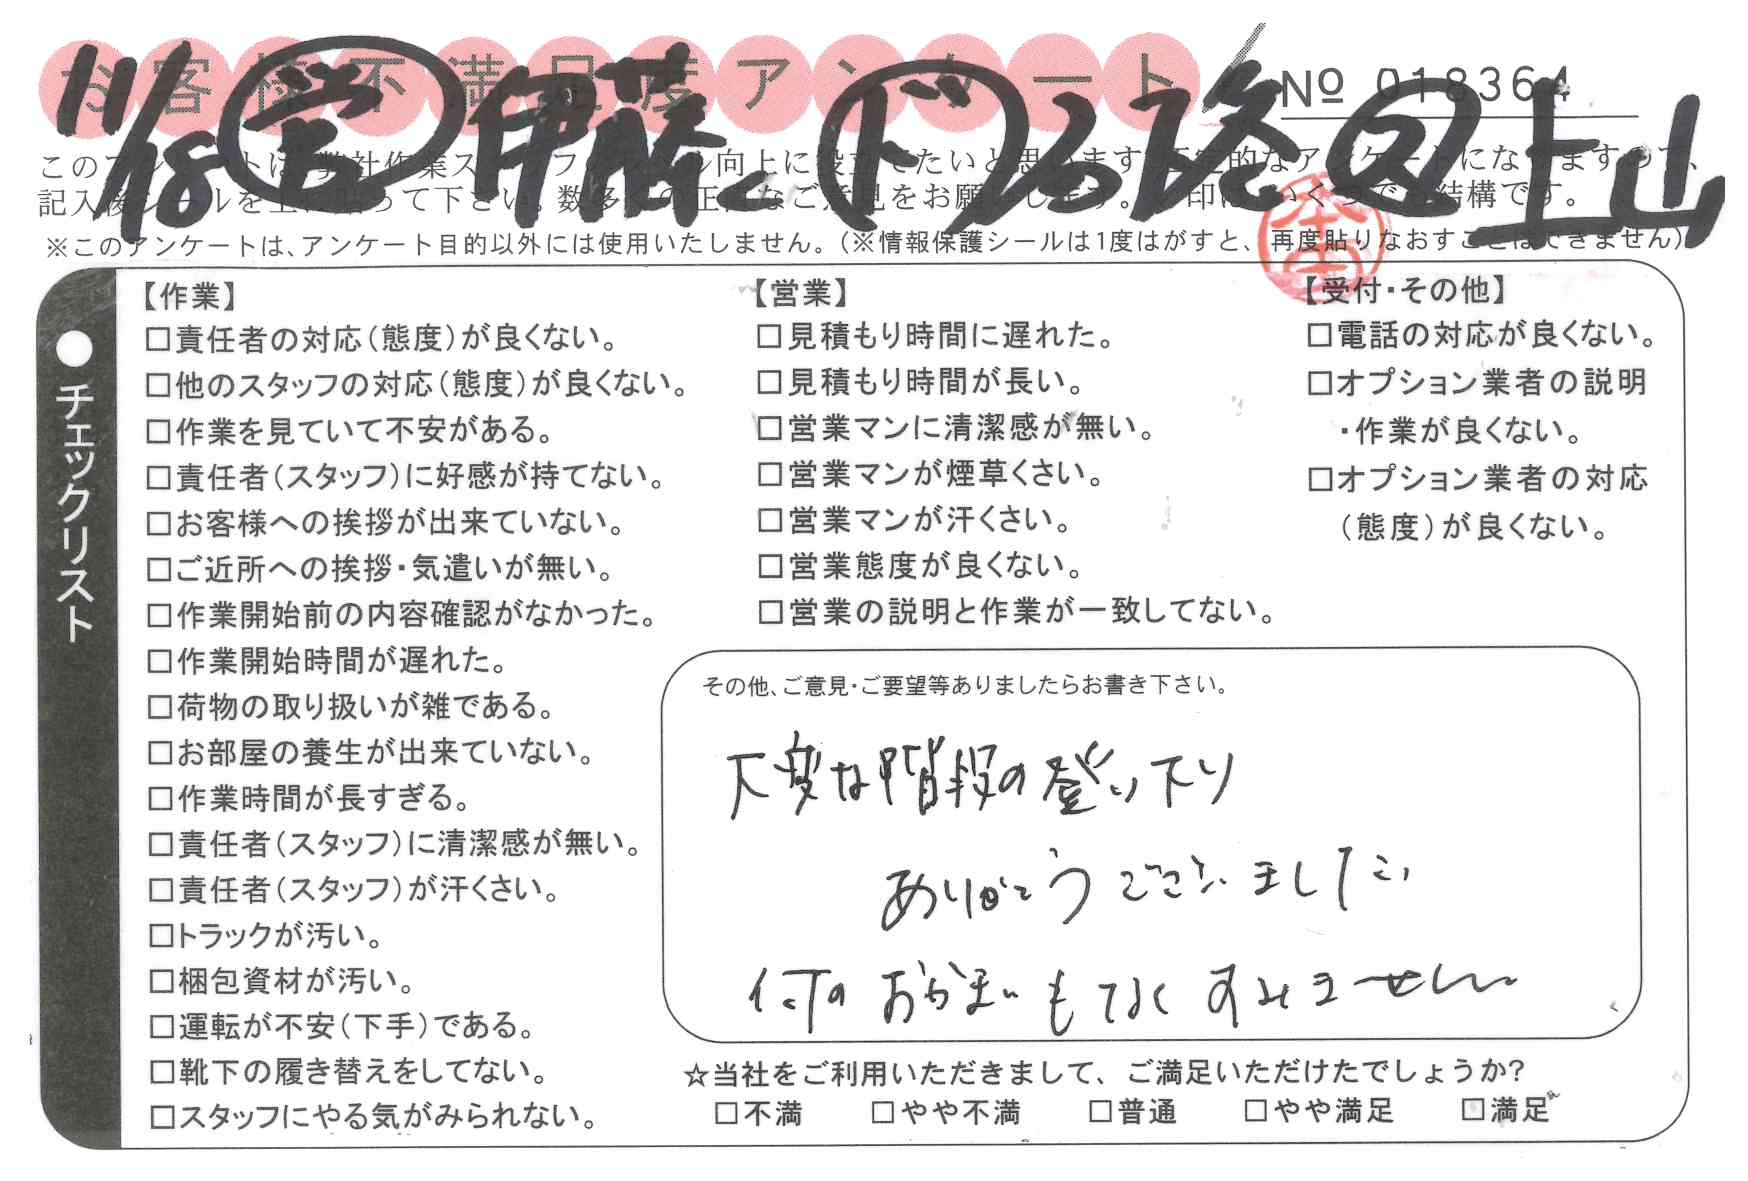 お客様不満足度アンケート
No 018364
11/18 営 伊藤 ド 又 上山
このアンケートは、弊社作業スタッフのレベル向上に役立てたいと思います。定期的なアンケートになりますので、
記入後シールを上に貼って下さい。数多くの正直なご意見をお願いします。レ印はいくつでも結構です。
※このアンケートは、アンケート目的以外には使用いたしません。(※情報保護シールは1度はがすと、再度貼りなおすことはできません)
●チェックリスト
【作業】
□責任者の対応(態度)が良くない。
□他のスタッフの対応(態度)が良くない。
□作業を見ていて不安がある。
□責任者(スタッフ)に好感が持てない。
□お客様への挨拶が出来ていない。
□ご近所への挨拶・気遣いが無い。
□作業開始前の内容確認がなかった。
□作業開始時間が遅れた。
□荷物の取り扱いが雑である。
□お部屋の養生が出来ていない。
□作業時間が長すぎる。
□責任者(スタッフ)に清潔感が無い。
□責任者(スタッフ)が汗くさい。
□トラックが汚い。
□梱包資材が汚い。
□運転が不安(下手)である。
□靴下の履き替えをしてない。
□スタッフにやる気がみられない。
【営業】
□見積もり時間に遅れた。
□見積もり時間が長い。
□営業マンに清潔感が無い。
□営業マンが煙草くさい。
□営業マンが汗くさい。
□営業態度が良くない。
□営業の説明と作業が一致してない。
【受付・その他】
□電話の対応が良くない。
□オプション業者の説明
・作業が良くない。
□オプション業者の対応
(態度)が良くない。
その他、ご意見・ご要望等ありましたらお書き下さい。
大変な階段の登り下り
ありがとうございました
何のおかまいもなくすみません
☆当社をご利用いただきまして、ご満足いただけたでしょうか?
□不満 □やや不満 □普通 □やや満足 □満足